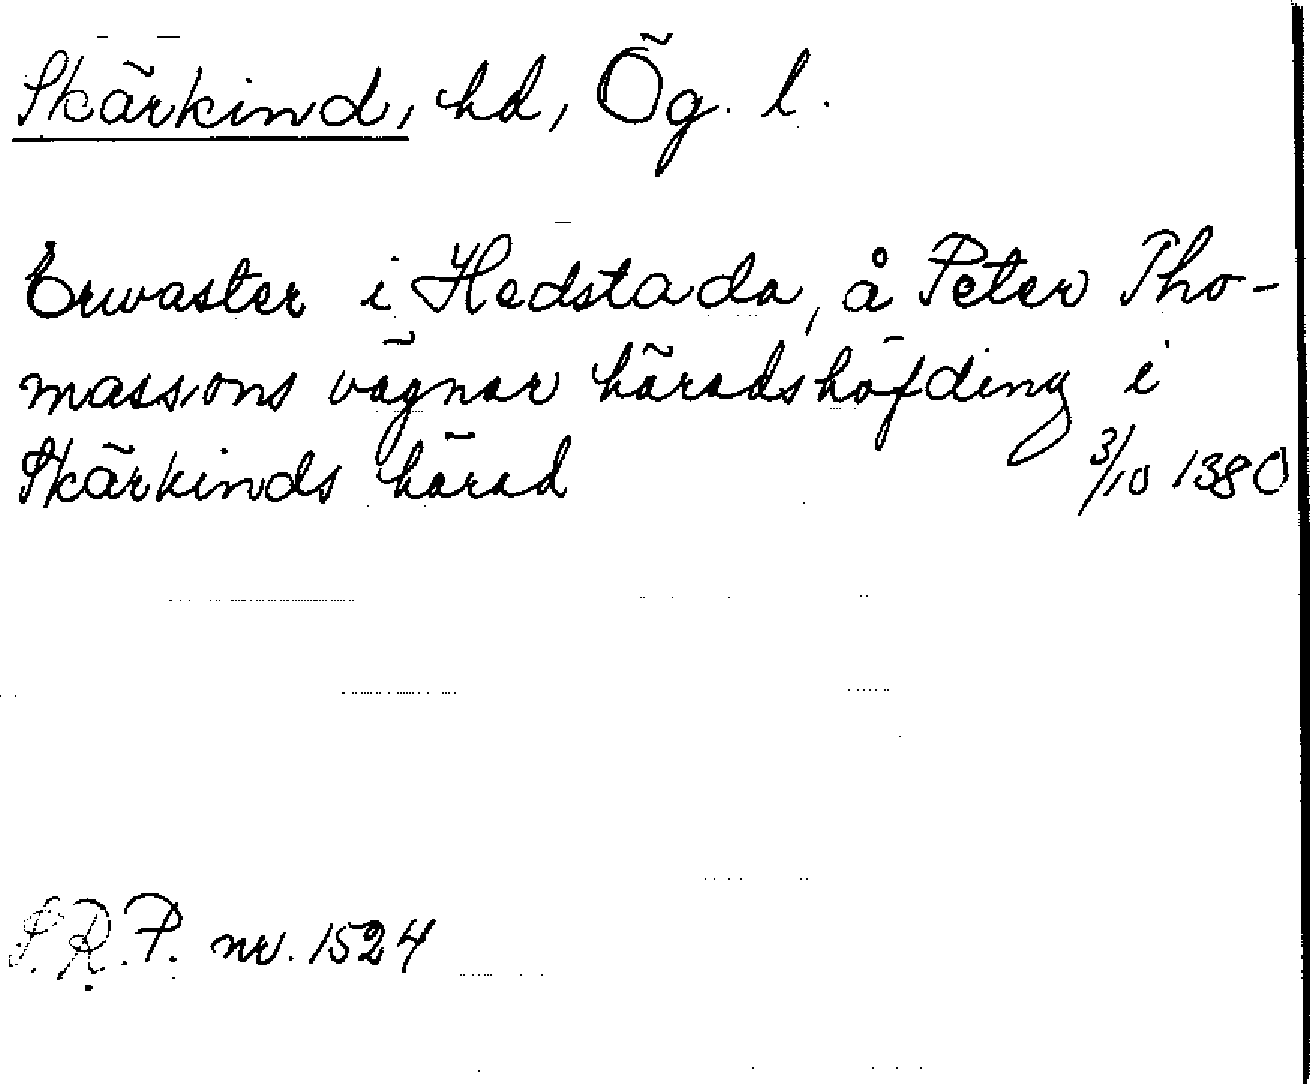 Skärkind, hd, Ög. l.
Erwaster i Hedstada, å Peter Tho-
massons vägnar häradshöfding i
Skärkinds härad 3/10 1380
S.R.P. nr. 1524